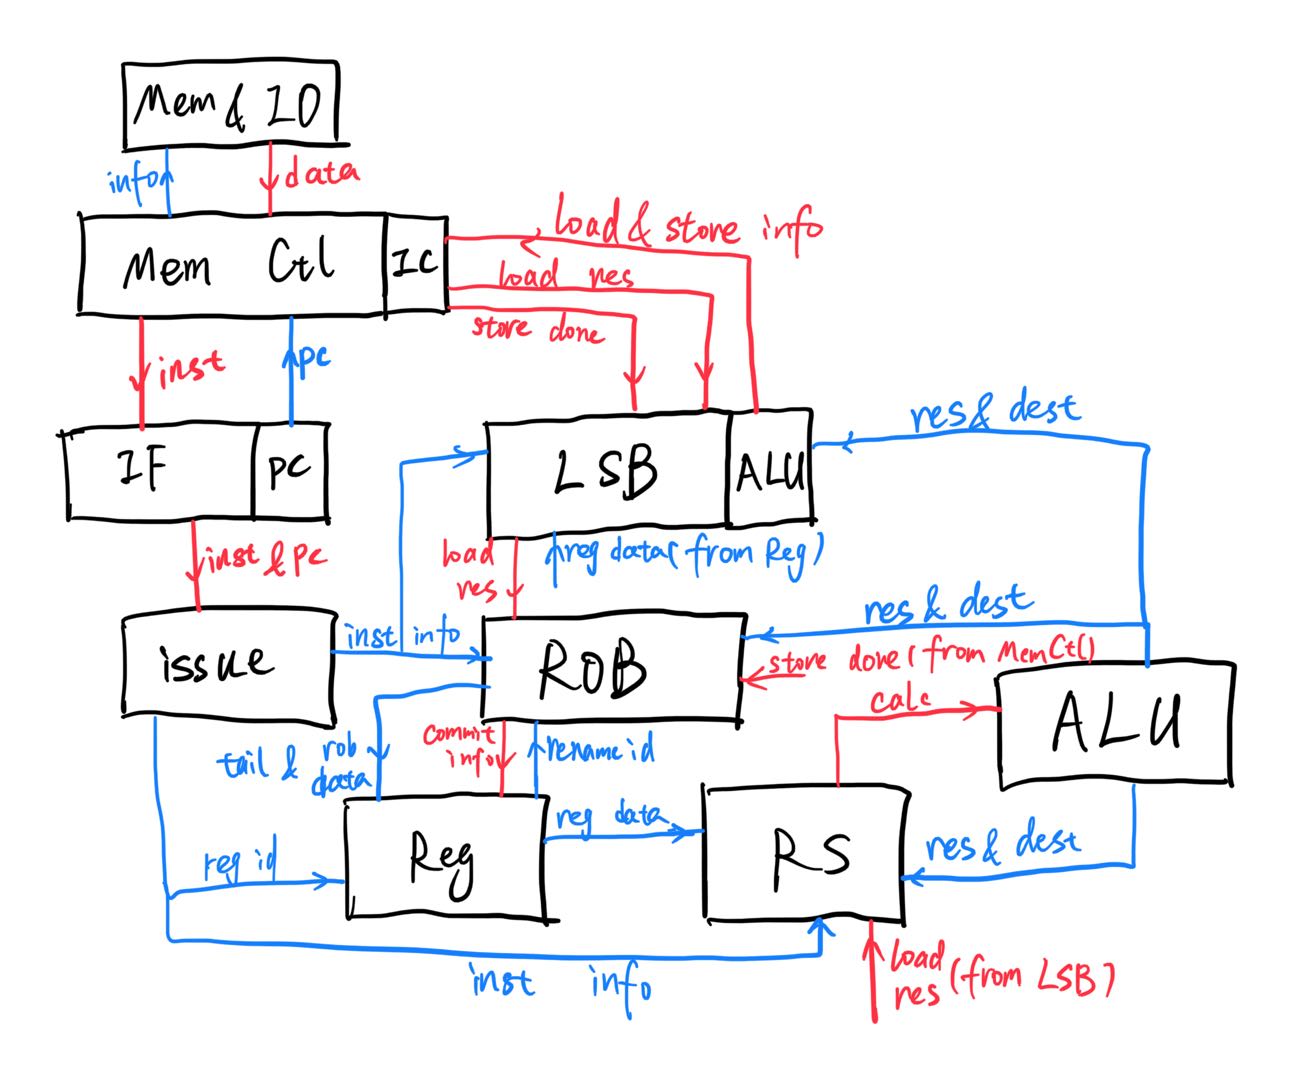 Mem & IO
info
data
Mem Ctl
IC
load & store info
load res
store done
inst
pc
IF
PC
LSB
ALU
res & dest
inst & pc
load
res
reg data (from Reg)
issue
inst info
ROB
res & dest
store done (from MemCtl)
calc
ALU
tail & rob
data
commit
info
rename id
reg id
Reg
reg data
RS
res & dest
inst info
load
res
(from LSB)